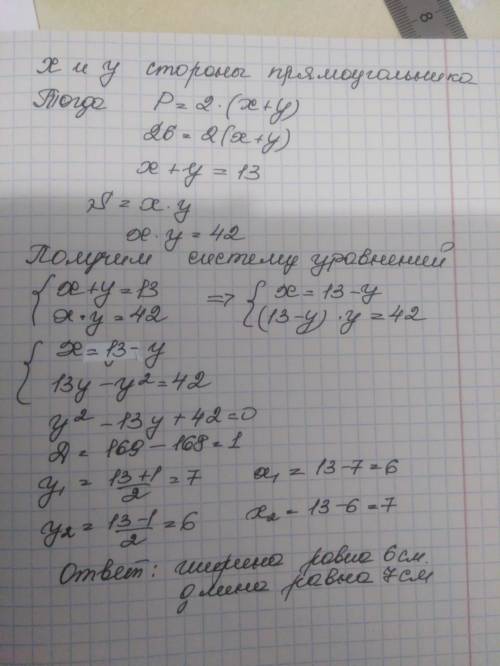 8
х и у стороны прямоугольника
Тогда P = 2·(x+y)
26 = 2(x+y)
x + y = 13
S = x·y
x·y = 42
Получим систему уравнений
{ x+y=13 => { x = 13-y
x·y = 42 (13-y)·y = 42
{ x = 13-y
13y - y² = 42
y² - 13y + 42 = 0
D = 169 - 168 = 1
y₁ = (13+1)/2 = 7 x₁ = 13-7 = 6
y₂ = (13-1)/2 = 6 x₂ = 13-6 = 7
Ответ: ширина равна 6 см.
длина равна 7 см